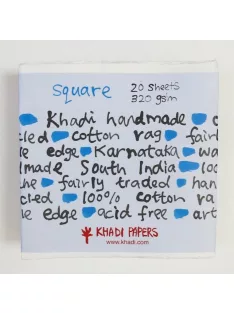 Square 20 sheets
320 gsm
Khadi handmade
cled cotton rag fairl
e edge Karnataka wa
dmade South India 100
che fairly traded han
cled 100% cotton ra
e edge acid free art
KHADI PAPERS
www.khadi.com